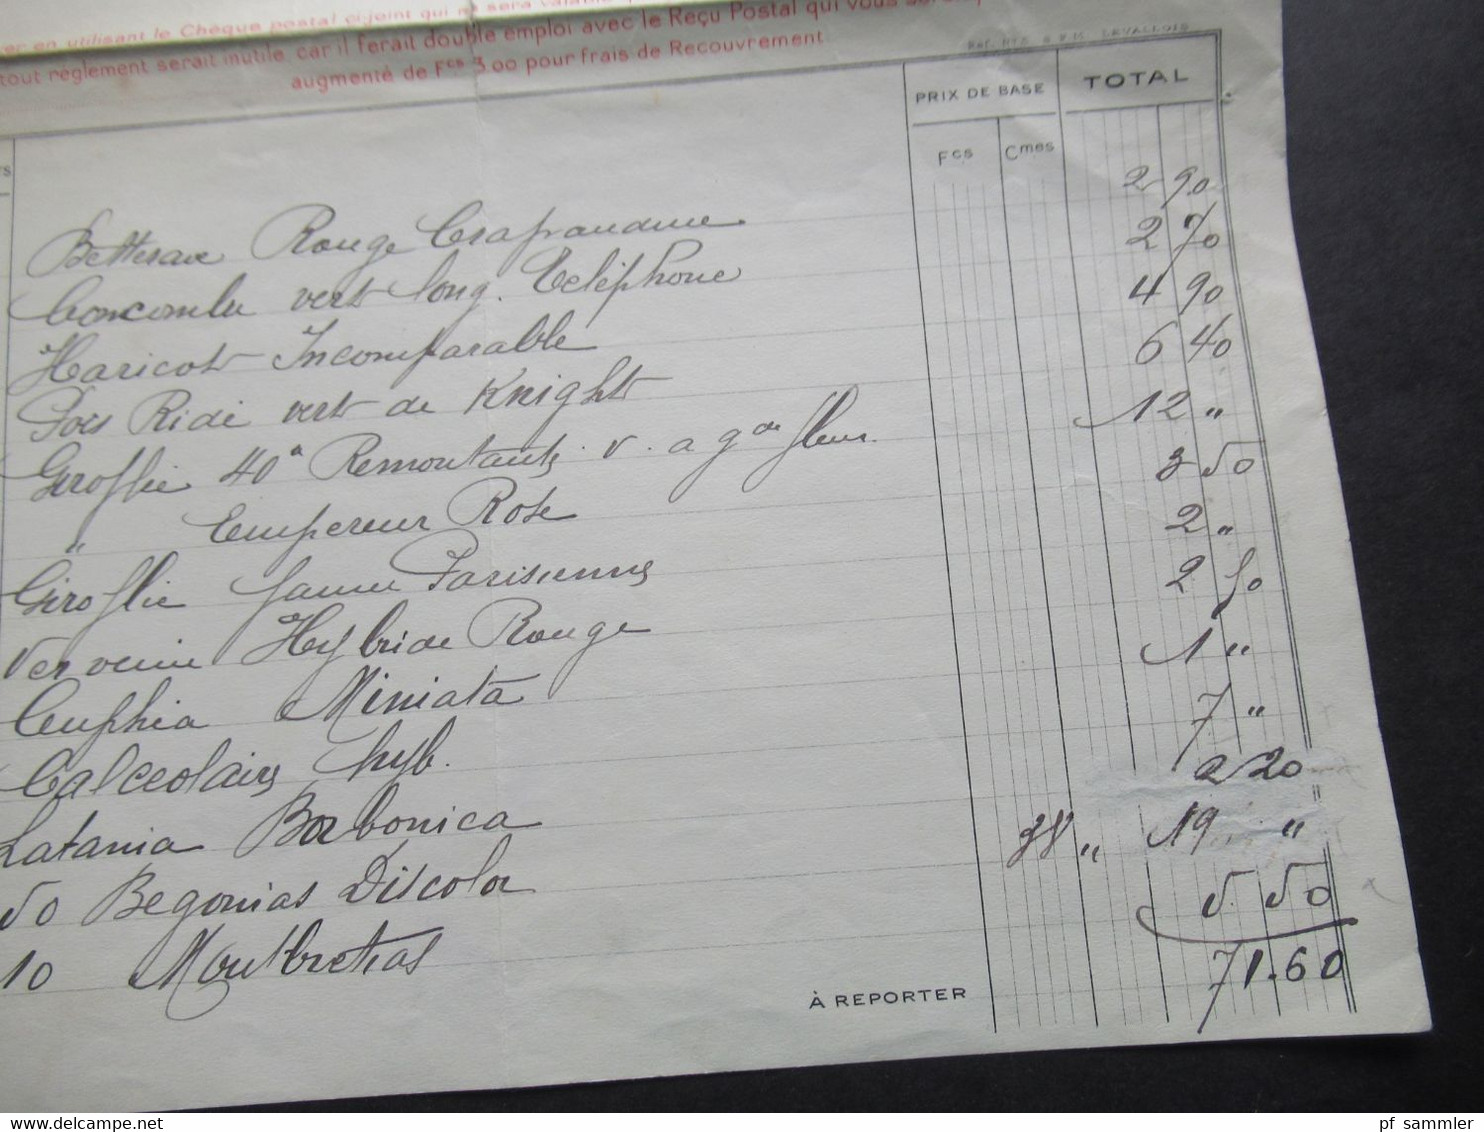 er en utilisant le Chèque postal ci-joint qui ne sera valable
tout réglement serait inutile, car il ferait double emploi avec le Reçu Postal qui vous
augmenté de Fcs 3.00 pour frais de Recouvrement
PRIX DE BASE TOTAL
Fcs Cmes
2 90
Betterave Rouge Crapaudine 2 70
Concombre vert long. Téléphone 4 90
Haricot Incomparable 6 40
Pois Ridé vert de Knight 12 "
Giroflée 40a Remontante v. a gde fleur. 3 50
" Empereur Rose 2 "
Giroflée Jaune Parisienne 2 50
Verveine Hybride Rouge 1 "
Cuphea Miniata 7 "
Calceolaire hyb. 2 20
Latania Borbonica 38 " 19 "
50 Begonias Discolor 5 50
10 Montbretias 71.60
À REPORTER
pf sammler